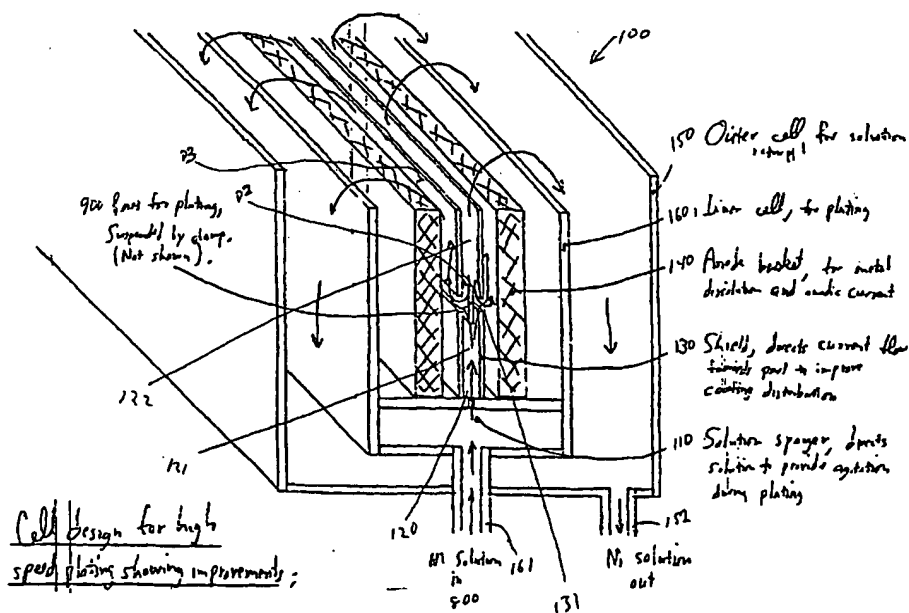 100
150 Outer cell for solution
return
160, Inner cell, for plating
140 Anode basket, for metal
dissolution and anodic current
130 Shield, directs current flow
towards part to improve
coating distribution
110 Solution sparger, directs
solution to provide agitation
during plating
900 Part for plating,
Suspended by clamp.
(Not shown).
122
121
120
Ni Solution
in
800
161
131
152
Ni solution
out
Cell design for high
speed plating showing improvements: